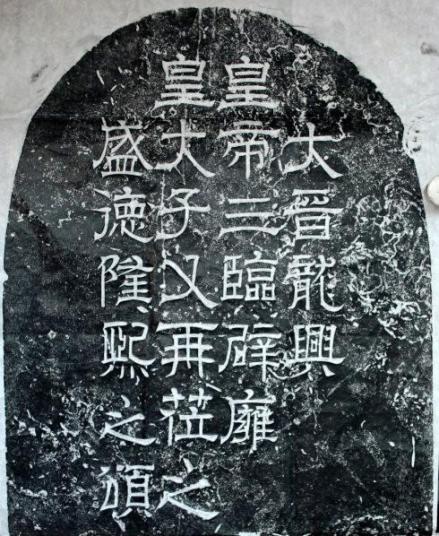 大晉龍興
皇帝三臨辟廱
皇大子又再莅之
盛德隆熙之頌